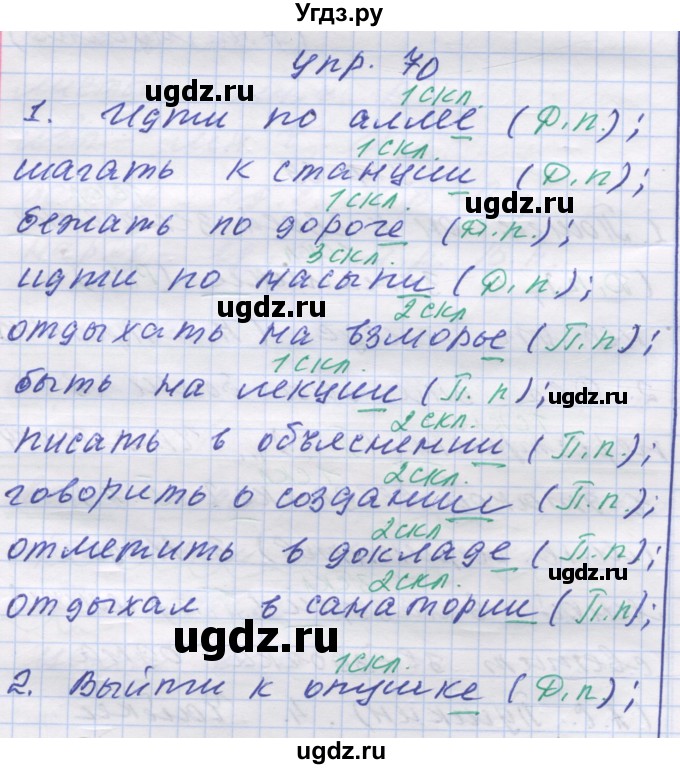 Угдз.ру
упр. 70
1 скл.
1. Идти по аллее (Д.п.);
1 скл.
шагать к станции (Д.п);
1 скл.
бежать по дороге (Д.п.);
3 скл.
идти по насыпи (Д.п.);
2 скл
отдыхать на взморье (П.п);
1 скл.
быть на лекции (П.п);
2 скл.
писать в объяснении (П.п.);
2 скл.
говорить о создании (П.п.);
2 скл
отметить в докладе (П.п);
2 скл.
отдыхал в санатории (П.п);
1 скл.
2. Выйти к опушке (Д.п);
ugdz.ru
ugdz.ru
ugdz.ru
ugdz.ru
ugdz.ru
ugdz.ru
ugdz.ru
ugdz.ru